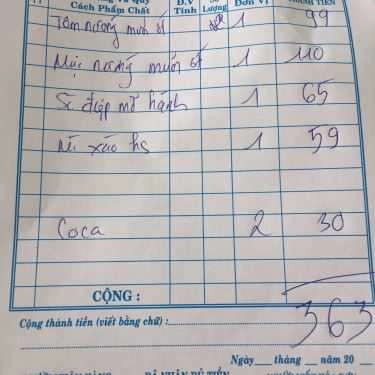 Cách Phẩm Chất Tính Lượng Đơn Vị THÀNH TIỀN
Tôm nướng muối ớt 1 99
Mực nướng muối ớt 1 110
Sò điệp mỡ hành 1 65
xào hs 1 59
Coca 2 30
CỘNG : 363
Cộng thành tiền (viết bằng chữ) :
Ngày tháng năm 20
ĐÃ NHẬN ĐỦ TIỀN